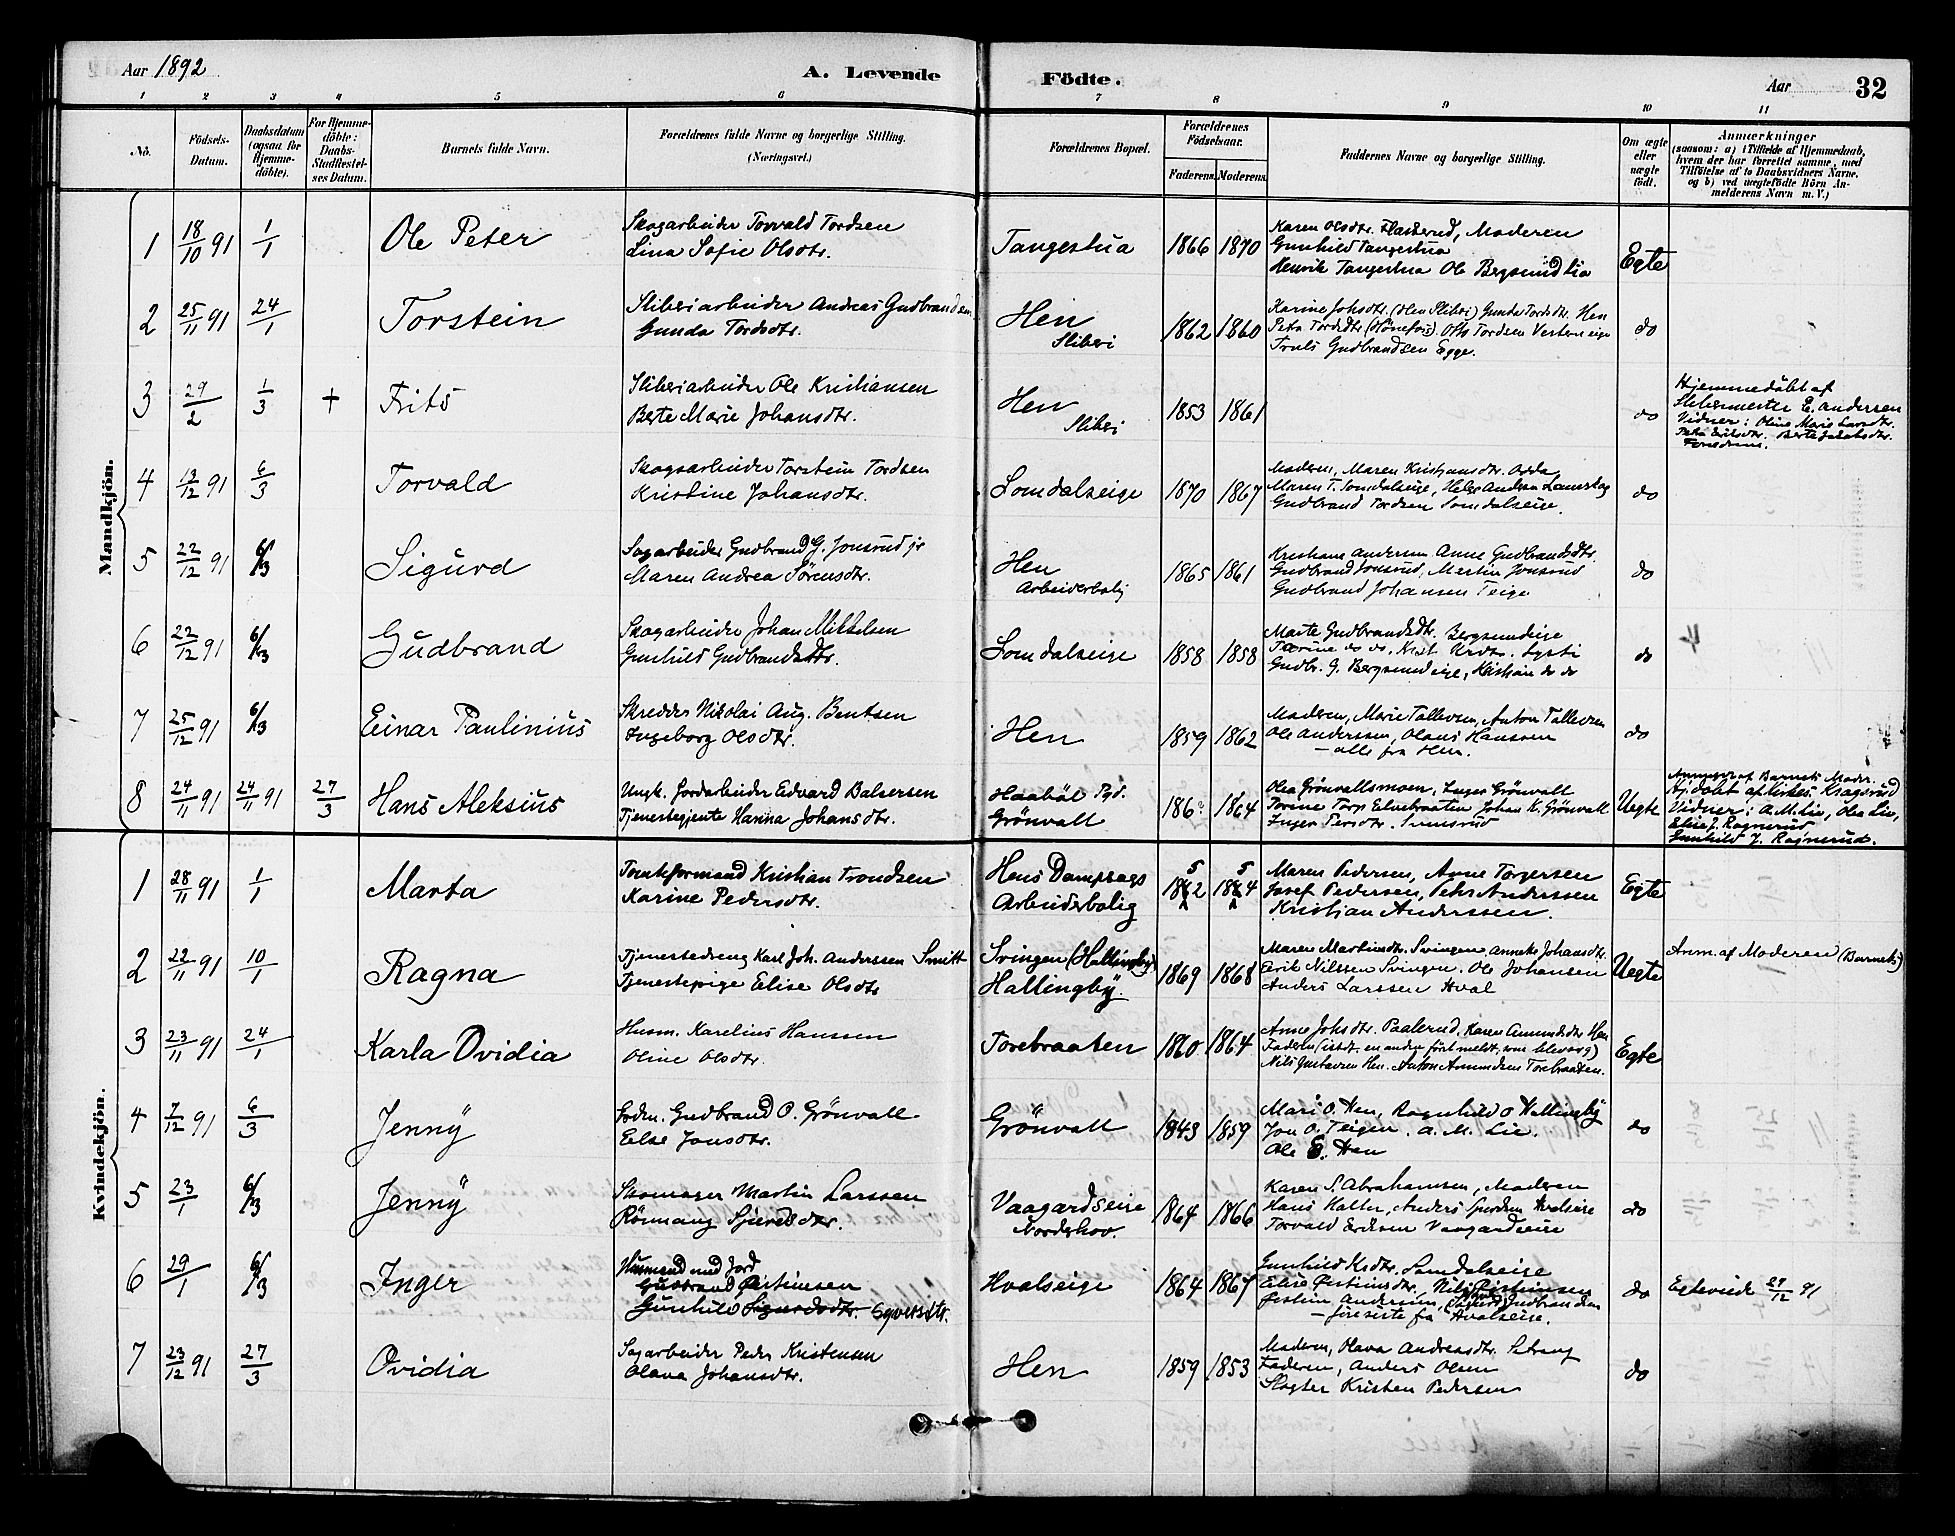 Aar 1892
A. Levende
Födte.
Aar
32
1 2 3 4 5 6 7 8 9 10 11
No.
Födsels-
Datum.
Daabsdatum
(ogsaa for
Hjemme-
döbte).
For Hjemme-
döbte:
Daabs-
Stadfæstel-
ses Datum.
Barnets fulde Navn.
Forældrenes fulde Navne og borgerlige Stilling.
(Næringsvei.)
Forældrenes Bopæl.
Forældrenes
Födselsaar.
Faderens. Moderens.
Faddernes Navne og borgerlige Stilling.
Om ægte
eller
uægte
födt.
Anmærkninger
(saasom: a) i Tilfælde af Hjemmedaab,
hvem der har forrettet samme, med
Tilföielse af to Daabsvidners Navne.
og b) ved uægtefödte Börn An-
melderens Navn m. V.)
Mandkjön.
1 18/10 91 1/1
Ole Peter
Skogarbeider Torvald Tordsen
Lina Sofie Olsdtr.
Tangestua
1866 1870
Karen Olsdtr. Flaskerud, Moderen
Gunhild Tangestua
Henrik Tangestua Ole Bergsund Lia
Egte
2 25/11 91 24/1
Torstein
Sliberiarbeider Andreas Gudbrandsen
Gunda Tordsdtr.
Hen
Sliberi
1862 1860
Karine Johsdtr. (Hen Sliberi) Gunda Tordsdtr. Hen
Petra Tordsdtr. (Hönefos) Ole Tordsen Vesterneige
Truls Gudbrandsen Egge.
do
3 29/2 1/3 +
Frits
Sliberiarbeider Ole Kristiansen
Berte Marie Johansdtr.
Hen
Sliberi
1853 1861
do
Hjemmedöbt af
Slibermester E. Andersen
Vidner: Oline Marie Larsdtr.
Petra Eriksdtr. Berte Jakobsdtr.
4 13/12 91 6/3
Torvald
Skogsarbeider Torstein Tordsen
Kristine Johansdtr.
Somdalseige
1870 1867
Moderen, Maren Kristiansdtr. Odda
Maren T. Somdalseige, Helge Andersen
Gudbrand Tordsen Somdalseige.
do
5 22/12 91 6/3
Sigurd
Sagarbeider Gudbrand G. Jonsrud jr
Maren Andrea Sörensdtr.
Hen
Arbeiderbolig
1865 1861
Kristiane Andersen Anne Gudbrandsdtr.
Gudbrand Jonsrud, Martin Jonsrud
Gudbrand Johansen Teige
do
6 22/12 91 6/3
Gudbrand
Skogarbeider Johan Mikkelsen
Gunhild Gudbrandsdtr.
Somdalseige
1858 1858
Marte Gudbrandsdtr. Bergsundeige
Torine do do, Krist. Krdtr. Lysti
Gudbr. G. Bergsundeige, Kristian do do
do
4
7 25/12 91 6/3
Einar Paulinius
Skredder Nikolai Aug. Bentsen
Ingeborg Olsdtr.
Hen
1859 1862
Moderen, Marie Tollevsen, Anton Tollevsen
Ole Anderssen, Olaus Hanssen
— alle fra Hen.
do
8 24/11 91 24/11 91 27/3
Hans Aleksius
Ungk. Jordarbeider Edvard Balsersen
Tjenestejente Hanna Johansdtr.
Haaböl Pgd.
Grönvall
186? 1864
Olea Grönvallsmoen, Inger Grönvall
Torine Torp Johan K. Grönvall
Inger Persdtr. Svensrud
Uegte
Anmeldt af Barnets Moder.
Hjdöbt af Kragsrud
Vidner: A. M. Lie, Olea Lie,
Elise J. Ragnerud
Gunhild J. Ragnerud.
Kvindekjön.
1 28/11 91 1/1
Marta
Tomteformand Kristian Trondsen
Karine Pedersdtr.
Hens Dampsags
Arbeiderbolig
1852 1854
Maren Pedersen, Anne Torgersen
Josef Pedersen, Peter Anderssen
Kristian Anderssen.
Egte
2 22/11 91 10/1
Ragna
Tjenestedreng Karl Joh. Anderssen Smitt
Tjenestepige Eelise Olsdtr
Svingen (Hallingby)
Hallingby.
1869 1868
Maren Martinsdtr. Svingen Anneke Johansdtr.
Eerik Nilssen Svingen. Ole Johansen
Anders Larssen Hval
Uegte
Anm. af Moderen (Barnets)
3 23/11 91 24/1
Karla Ovidia
Husm. Karelius Hanssen
Oline Olsdtr.
Torebraaten
1860 1864
Anne Johsdtr. Paalerud, Karen Amundsdtr Hen
Faderen (istdt. en anden först meldt, som blev syg)
Nils Gustavsen Hen. Anton Amundsen Torebraaten.
Egte
4 7/12 91 6/3
Jenny
Gudbrand O. Grönvall
Eelse Jonsdtr.
Grönvall
1843 1859
Mari O. Hen, Ragnhild O Hallingby
Jon O. Teigen. A. M. Lie.
Ole E. Hen
do
5 23/1 6/3
Jenny
Skomager Martin Larssen
Rönnaug Sjursdtr.
Vaagaardseige
Norderhov.
1864 1866
Karen S. Abrahamsen, Moderen
Hans Halter, Anders Hvalseige
Torvald Eriksen Vaagaardseige
do
6 29/1 6/3
Inger
Husmand med Jord
Gudbrand Östensen
Gunhild Sigurdsdtr. Syversdtr.
Hvalseige
1864 1867
Gunhild Krdtr. Somdalseige
Elise Östensdtr, Nils Östensen
Östen Andersen, Gudbrandsen
— fire siste fra Hvalseige.
do
Egteviede 27/12 91
7 23/12 91 27/3
Ovidia
Sagarbeider Peder Kristensen
Olava Johansdtr.
Hen
1859 1853
Moderen, Olava Andreasdtr.
Faderen, Anders Olsen
Slagter Kristen Pedersen
do